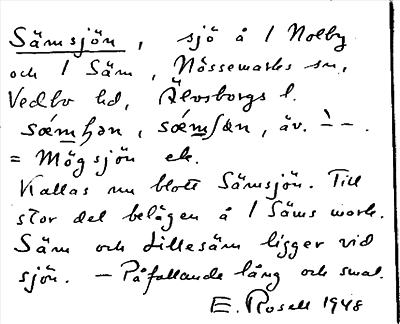 Sämsjön, sjö å / Nolby
och / Säm, Nössemarks sn,
Vedbo hd, Älvsborgs l.
sœ́mʃən, sœ́mʃæn, äv. ` – –.
= Mögsjön ek.
Kallas nu blott Sämsjön. Till
stor del belägen å / Säms mark.
Säm och Lillesäm ligger vid
sjön. – Påfallande lång och smal.
E. Rosell 1948